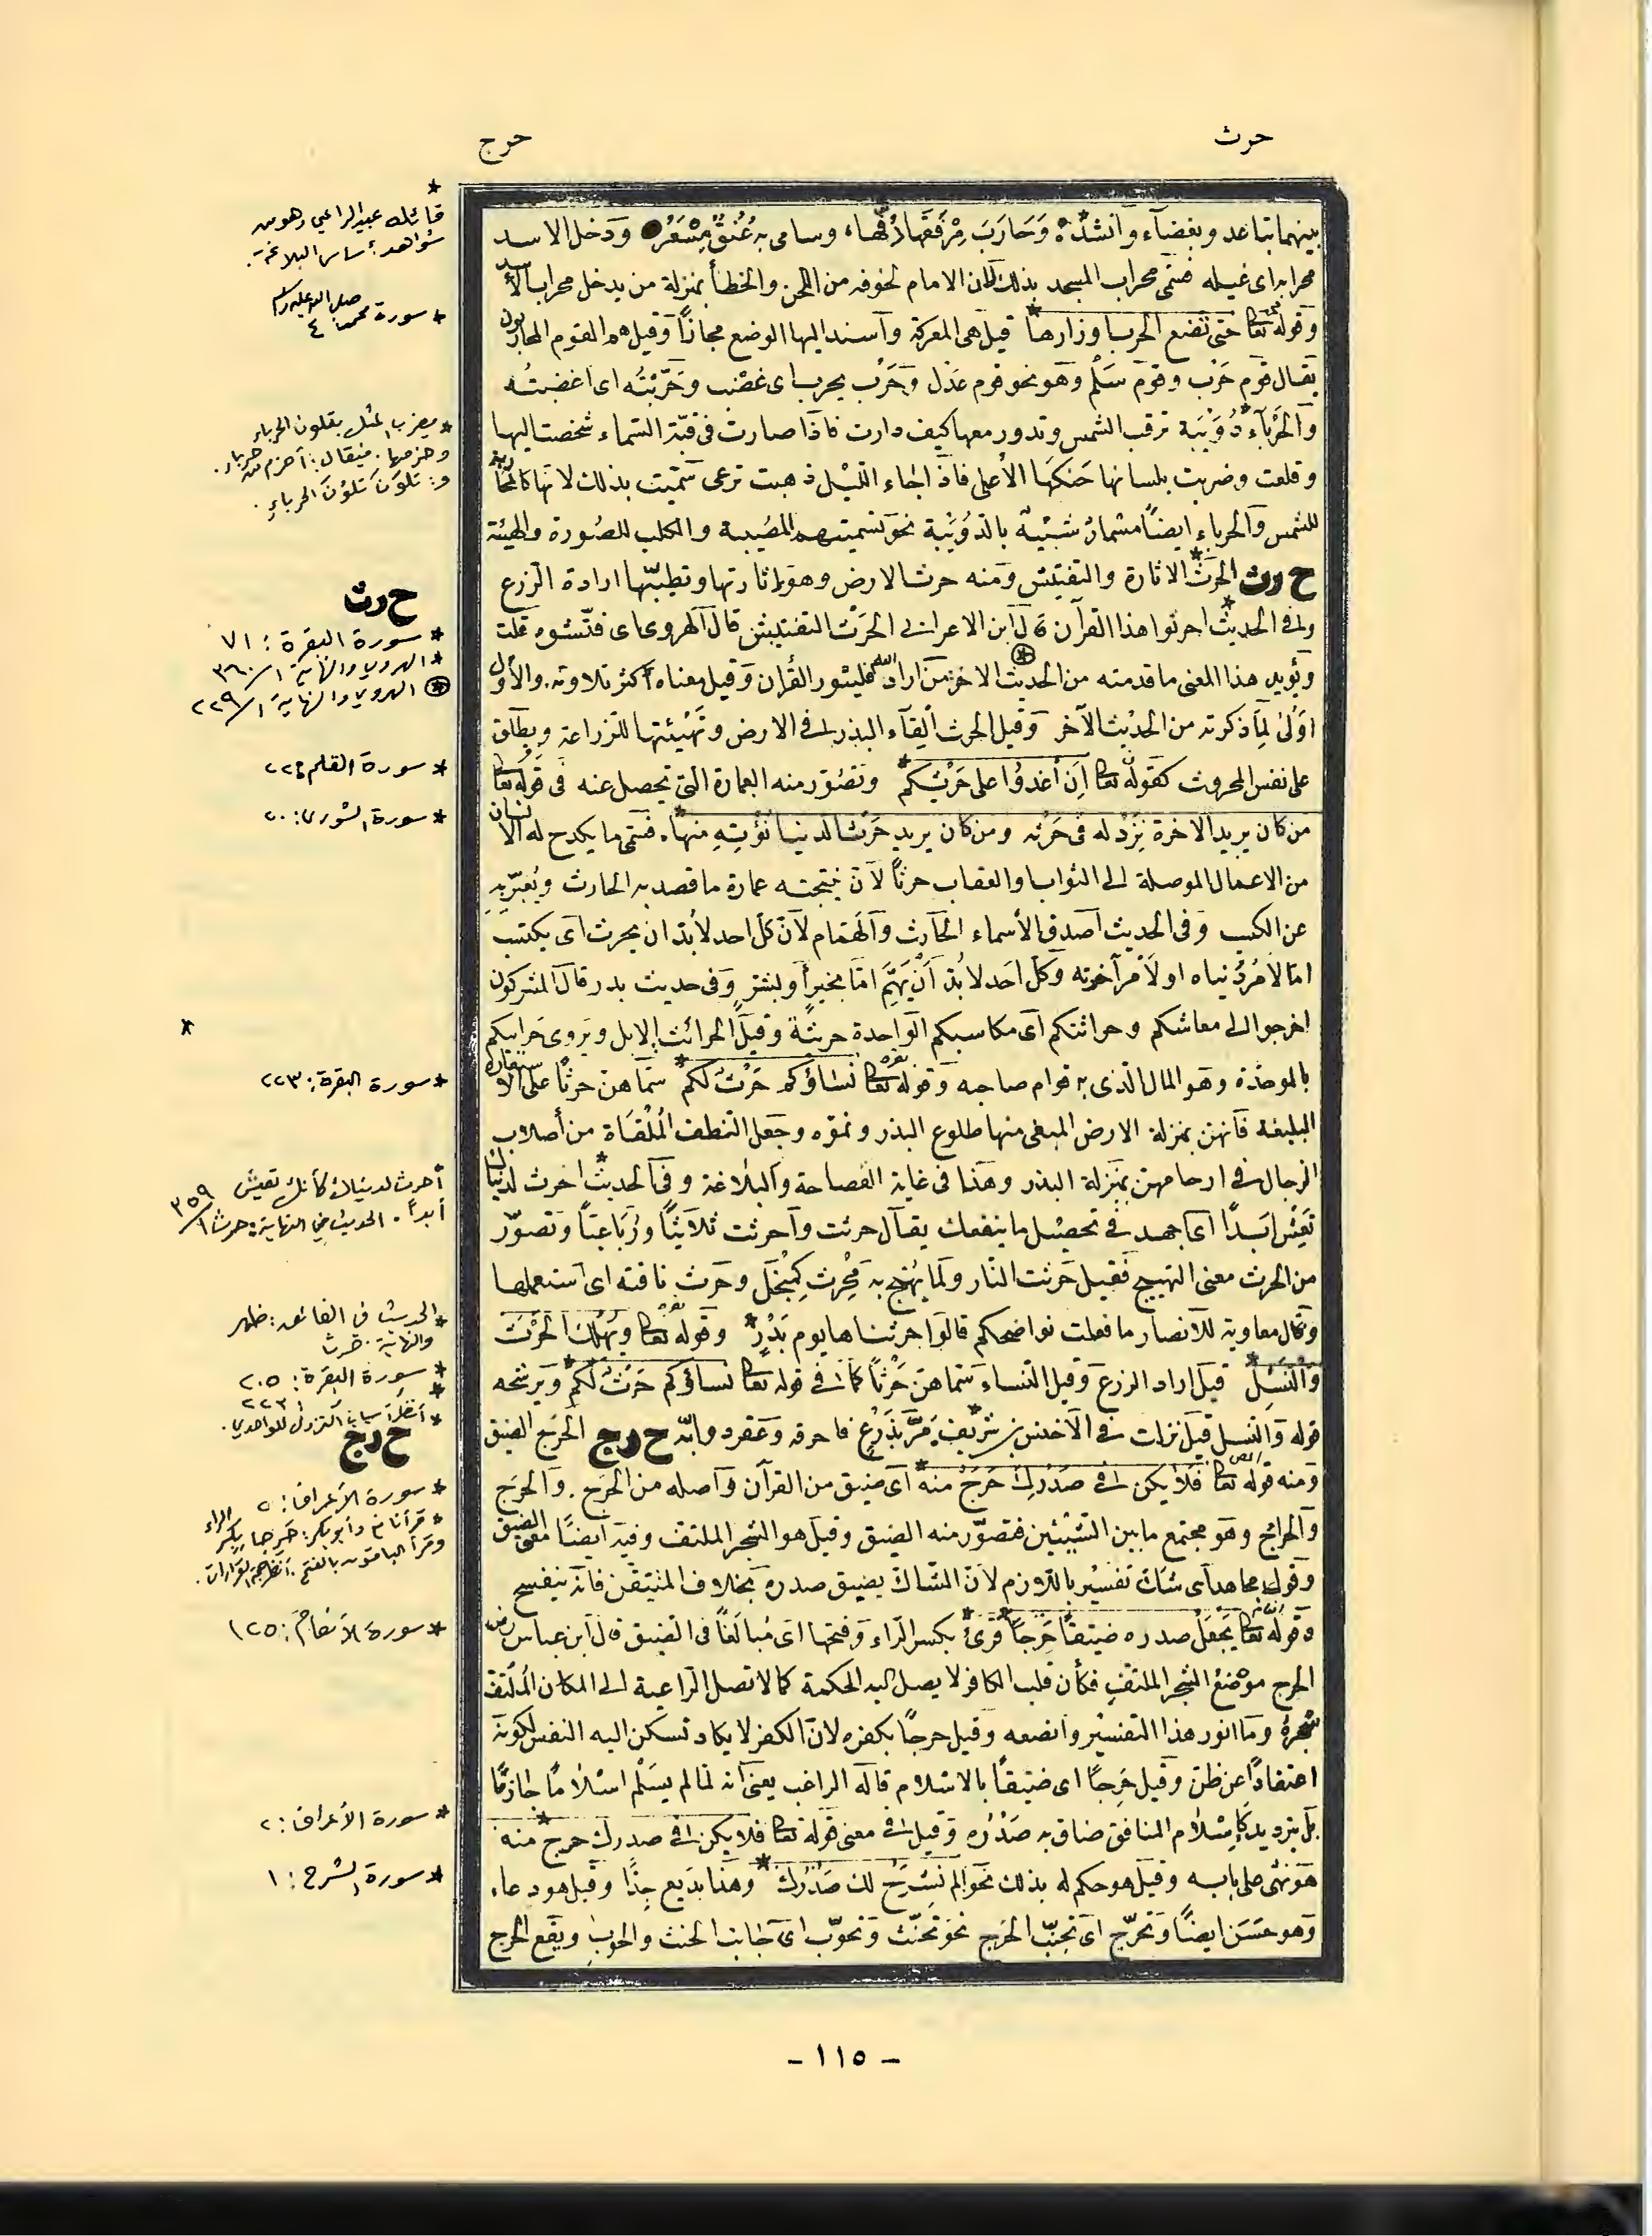 حرث
حرج
بينهما تباعد وبغضاء وانشد وَحَارَبَ مِرْفَقَهَا دَفَّهَا وسامى به عُنُقٌ مِسْعَرُ ودخل الاسد
محرابه اى غيله فسمى محراب المسجد بذلك لان الامام لخوفه من اللحن والخطأ بمنزلة من يدخل محراب الأسد
وقوله تعا حتى تضع الحرب اوزارها قيل هى المعركة وأسند اليها الوضع مجازاً وقيل هم القوم المحاربون
يقال قوم حَرْب وقوم سَلْم وهو نحو قوم عَدْل وحَرِب يحرب اى غضب وحَرَّبْتُه اى اغضبتُه
والحِرْبَآء دُوَيْبة ترقب الشمس وتدور معها كيف دارت فاذا صارت فى قبّة السماء شخصت اليها
وقلعت وضربت بلسانها حَنَكَهَا الأعلى فاذا جاء الليل ذهبت ترعى سمّيت بذلك لانها كالمحاربة
للشمس والحرباء ايضاً مسمار شبّيه بالدُوَيْبة نحو تسميتهم الضبّة والكلب للصُورة والهيئة
ح رث الحَرْث الاثارة والتفتيش ومنه حرث الارض وهو اثارتها وتطييبها ارادة الزرع
وفى الحديث احرثوا هذا القرآن قال ابن الاعرابى الحَرْث التفتيش قال الهروى اى فتّشوه قلت
ويؤيد هذا المعنى ما قدمته من الحديث الاخر من اراد العلم فليثور القرأن وقيل معناه اكثر تلاوته والأول
اَوْلى لِما ذكرته من الحديث الآخر وقيل الحرث اِلقآء البذر فى الارض وتَهْيئتها للزراعة ويطلق
على نفس المحروث كقوله تعا اَنِ اْغدُوْا على حَرْثِكم وتصُوّر منه العمارة التى تحصل عنه فى قوله تعا
من كان يريد الاخرة نَزِدْ له فى حَرْثه ومن كان يريد حَرْث الدنيا نُؤْتِهِ مِنها فسمى ما يكدح له الانسان
من الاعمال الموصلة الى الثواب والعقاب حرثاً لأن نتيجته عمارة ما قصد به الحارث ويُعبّر به
عن الكسب وفى الحديث اَصدق الأسماء الحَارث والهَمّام لأن كل احد لا بُدّ ان يحرث اى يكتسب
امّا لأمر دُنياه او لأمر آخرته وكل احد لا بُدّ أَنْ يَهِمَّ امّا بخيرٍ أو بشرٍّ وفى حديث بدر قال المشركون
اخرجوا الى معاشكم وحرائثكم اى مكاسبكم الواحدة حريثة وقيل الحرائث الابل ويروى حرائبكم
بالموحّدة وهو المال الذى به قوام صاحبه وقوله تعا نساؤكم حَرْثٌ لكم سمّاهنّ حرثاً على الاستعارة
البليغة فانّهن بمنزلة الارض المبغى منها طلوع البذر ونموّه وجعل النطف المُلْقَاة من أصلاب
الرجال فى ارحامهن بمَنزلة البذر وهذا فى غاية الفصاحة والبلاغة وفى الحديث احرث لدنياك
تعِيْش اَبَداً اى اجهد فى تحصيل ما ينفعك يقال حرثت واَحرثت ثلاثيّاً ورُبَاعيّاً وتصوّر
من الحرث معنى التهييج فقيل حَرثت النّار ولما يُهَيّج به مِحْرث كمِنْجَل وحَرث ناقته اى استعملها
وقال معاوية للانصار ما فعلت نواضحكم قالوا حرثناها يوم بَدْرٍ وقوله تعا ويُهْلك الحَرْث
والنّسل قيل اراد الزرع وقيل النساء سَمّاهن حَرْثاً كما فى قوله تعا نساؤكم حَرْث لكم ويرشحه
قوله والنسل قيل نزلت فى الأخنس بن شريق مَرَّ بزَرْعٍ فاحرقه وعَقر دوابّه ح رج الحَرَج الضيق
ومنه قوله تعا فلا يكن فى صَدْرك حَرَجٌ منه اى ضيق من القرآن واصله من الحَرَج والحَرَج
والحِراج وهو مجتمع ما بين الشيئين فتصوّر منه الضيق وقيل هو الشجر الملتف وفيه ايضاً معنى الضيق
وقول مجاهد اى شك تفسيرٌ باللازم لأن الشاك يضيق صدره بخلاف المتيقن فانه ينفسح
وقوله تعا يَجْعَلْ صدره ضيقاً حَرَجاً قرئ بكسر الراء وفتحها اى مُبالَغاً فى الضيق قال ابن عباس رض
الحرج موْضع الشجر الملتفِ فكأن قلب الكافر لا يصل اليه الحكمة كما لا تصل الراعية الى المكان المُلتف
شجره وما انور هذا التفسير وانصعه وقيل حرجًا بكفره لأن الكفر لا يكاد تسكن اليه النفس لكونه
اعتقاداً عن ظن وقيل حَرِجاً اى ضيقاً بالاسلام قاله الراغب يعنى انه لمّا لم يسلم اسلاماً جازماً
بل بترديد كاِسلام المنافق ضاق به صَدْرُه وقيل فى معنى قوله تعا فلا يكن فى صدرك حرج منه
هو نهى على بابه وقيل هو حكم له بذلك نحو ألم نشرح لك صَدْرك وهذا بديع جدّاً وقيل هو دعاء
وهو حسَن ايضاً وتحرّج اى تجنّب الحَرج نحو تحنّث وتحوّب اى جانب الحنث والحوب ويقع الحرج
* قائله عبيد الراعي وهو من
شواهد أساس البلاغة.
* سورة محمد صلى الله عليه وسلم ٤
* يضرب المثل بتلون الحرباء
وحزمها. فيقال: أحزم من حرباء.
و: تلوّن تلوّنَ الحرباءِ.
ح رث
* سورة البقرة: ٧١
* الهروي والنهاية ١/٣٦٠
⊛ الهروي والنهاية ١/٢٢٩
* سورة القلم: ٢٢
* سورة الشورى: ٢٠
*
* سورة البقرة: ٢٢٣
أحرث لدنياك كأنك تعيش
أبداً. الحديث في النهاية: حرث ١/٣٥٩
* الحديث في الفائق: ظهر
والنهاية: حرث
* سورة البقرة: ٢٠٥
* ٢٢٣
* انظر أسباب النزول للواحدي.
ح رج
* سورة الأعراف: ٢
* قرأ نافع وأبو بكر: حَرِجا بكسر الراء
وقرأ الباقون بالفتح. انظر حجة القراءات.
* سورة الأنعام: ١٢٥
* سورة الأعراف: ٢
* سورة الشرح: ١
- ١١٥ -